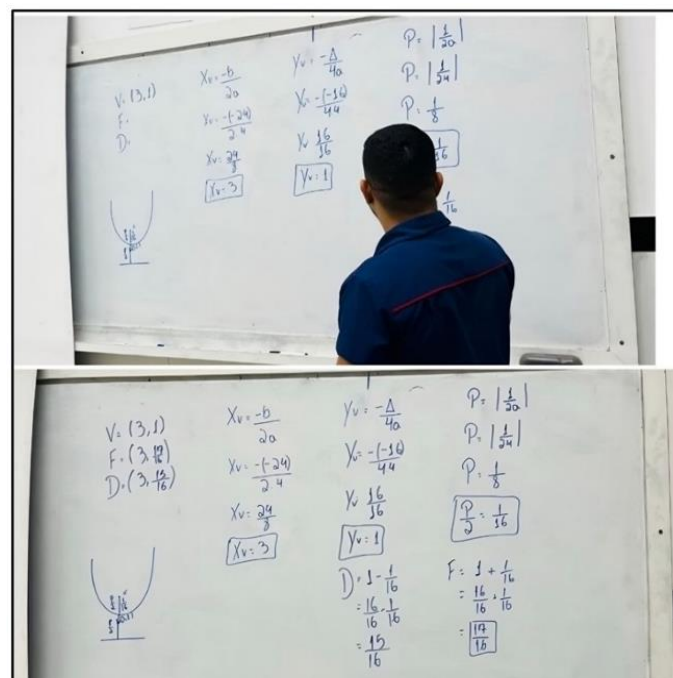 V= (3,1)
F=
D=
Xv= -b/2a
Xv= -(-24)/2·4
Xv= 24/8
Xv= 3
Yv= -Δ/4a
Yv= -(-16)/4·4
Yv= 16/16
Yv= 1
P= |1/2a|
P= |1/2·4|
P= 1/8
1/16
1/16
V= (3,1)
F= (3, 17/16)
D= (3, 15/16)
Xv= -b/2a
Xv= -(-24)/2·4
Xv= 24/8
Xv= 3
Yv= -Δ/4a
Yv= -(-16)/4·4
Yv= 16/16
Yv= 1
D= 1 - 1/16
= 16/16 - 1/16
= 15/16
P= |1/2a|
P= |1/2·4|
P= 1/8
P/2 = 1/16
F= 1 + 1/16
= 16/16 + 1/16
= 17/16